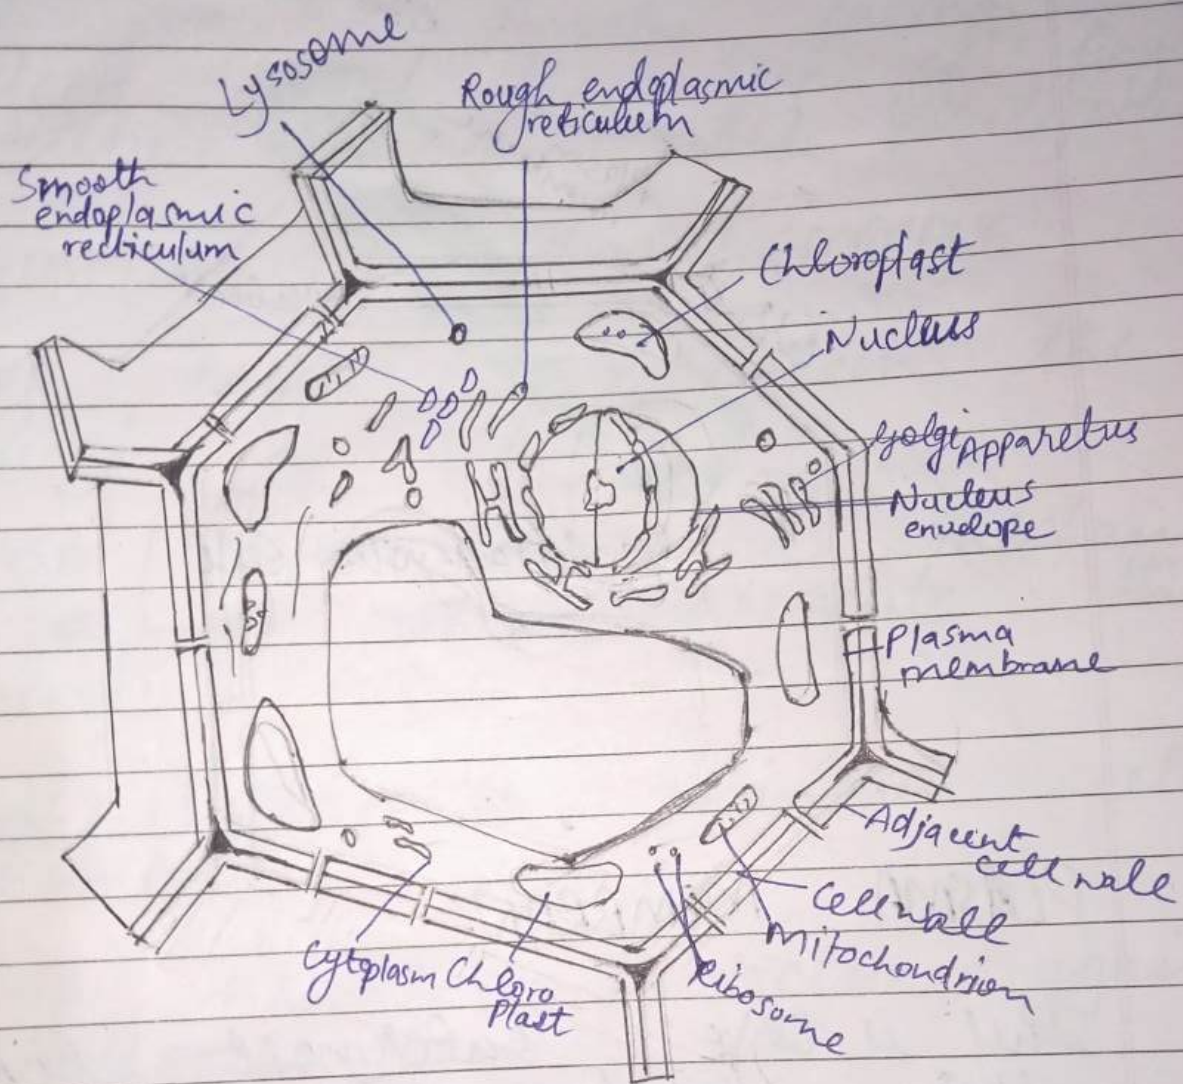 Lysosome
Rough endoplasmic
reticulum
Smooth
endoplasmic
recticulum
Chloroplast
Nucleus
Golgi Apparetus
Nucleus
envelope
Plasma
membrane
Adjacent
cell wall
Cell wall
Mitochondrion
Ribosome
Chloro
Plast
Cytoplasm